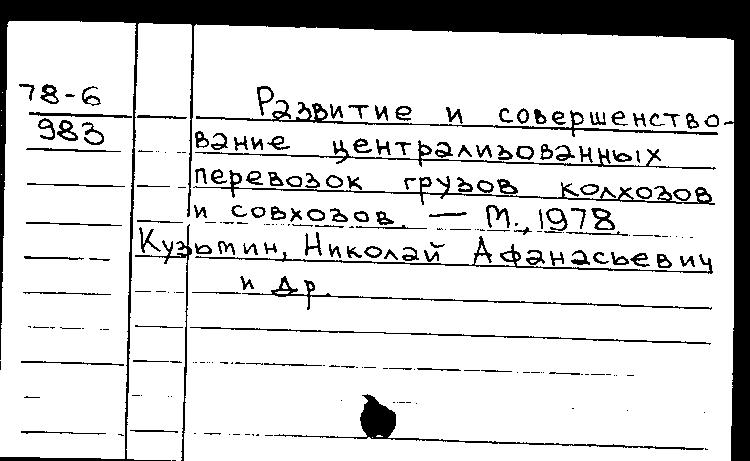 78-6
983
Развитие и совершенство-
вание централизованных
перевозок грузов колхозов
и совхозов. — М., 1978.
Кузьмин, Николай Афанасьевич
и др.